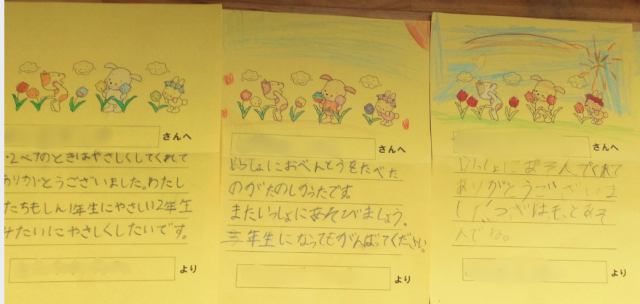 さんへ
・2ペアのときはやさしくしてくれて
ありがとうございました。わたし
たちもしん1年生にやさしい2年生
みたいにやさしくしたいです。
より
さんへ
いっしょにおべんとうをたべた
のがたのしかったです。
またいっしょにあそびましょう。
三年生になってもがんばってください。
より
さんへ
いっしょにあそんでくれて
ありがとうございま
した。つぎはもっとあそ
んでね。
より